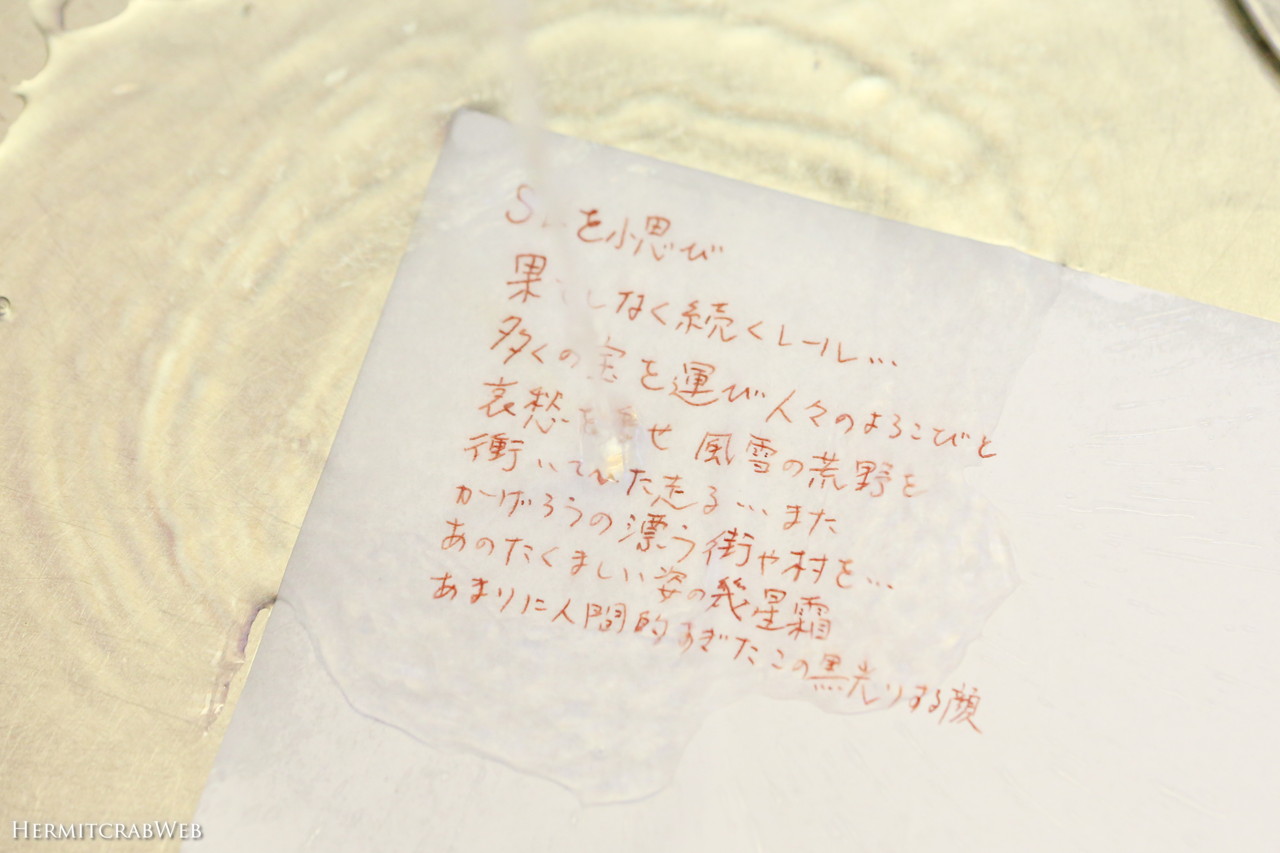 を小思び
果てしなく続くレール…
多くの宝を運び人々のよろこびと
哀愁を乗せ 風雪の荒野を
衝いてひた走る…また
かげろうの漂う街や村を…
あのたくましい姿の幾星霜
あまりに人間的すぎたこの黒光りする顔
HERMITCRABWEB